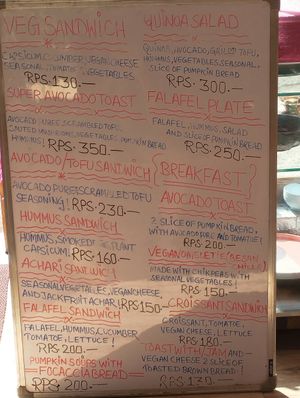 VEG SANDWICH
CAPSICUM, CUCUMBER, VEGAN CHEESE
SEASONAL TOMATOES, VEGETABLES.
RPS·130.—
SUPER AVOCADO TOAST
AVOCADO CUBES, SCRAMBLED TOFU
MUSHROOMS, VEGETABLES, PUMPKIN BREAD
HUMMUS! RPS·350—
AVOCADO/TOFU SANDWICH
AVOCADO PUREE, SCRAMBLED TOFU
SEASONING! RPS·230—
HUMMUS SANDWICH
HUMMUS, SMOKED EGGPLANT
CAPSICUM. RPS·160—
ACHARI SANDWICH
SEASONAL VEGETABLES, VEGAN CHEESE,
AND JACKFRUIT ACHAR! RPS 150—
FALAFEL SANDWICH
FALAFEL, HUMMUS, CUCUMBER
TOMATOE, LETTUCE!
RPS 200—
PUMPKIN SOUPS WITH
FOCACCIA BREAD—
RPS 200—
QUINOA SALAD
QUINOA, AVOCADO, GRILLED TOFU,
HUMMUS, VEGETABLES, SEASONAL,
2 SLICE OF PUMPKIN BREAD
RPS·300.—
FALAFEL PLATE
FALAFEL, HUMMUS, SALAD
AND SLICE OF PUMPKIN BREAD
RPS·250.—
{BREAKFAST}
AVOCADO TOAST
2 SLICE OF PUMPKIN BREAD,
WITH AVOCADO PURE AND TOMATOE!
RPS 200—
VEGAN OMELETTE (BESAN
MADE WITH CHIKPEAS WITH
SEASONAL VEGETABLES!
RPS 150—
CROISSANT SANDWICH
CROISSANT, TOMATOE,
VEGAN CHEESE, LETTUCE!
RPS 180—
TOAST WITH JAM AND
VEGAN CHEESE 2 SLICE OF
TOASTED BROWN BREAD!
RPS 130—